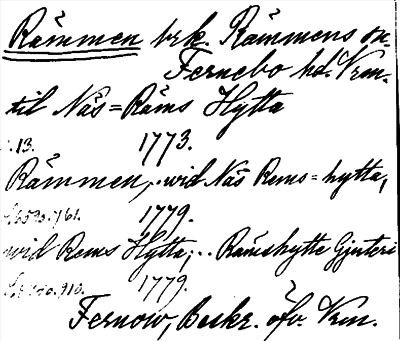 Rämmen brk. Rämmens sn.
Fernebo hd. Vrm.
til Näs=Räms Hytta
.13. 1773.
Rämmen, .. wid Näs Rems=hytta,
1779.
wid Rems Hytta; .. Rämshytte Gjuteri
.910. 1779.
Fernow, Beskr. öfv. Vrm.